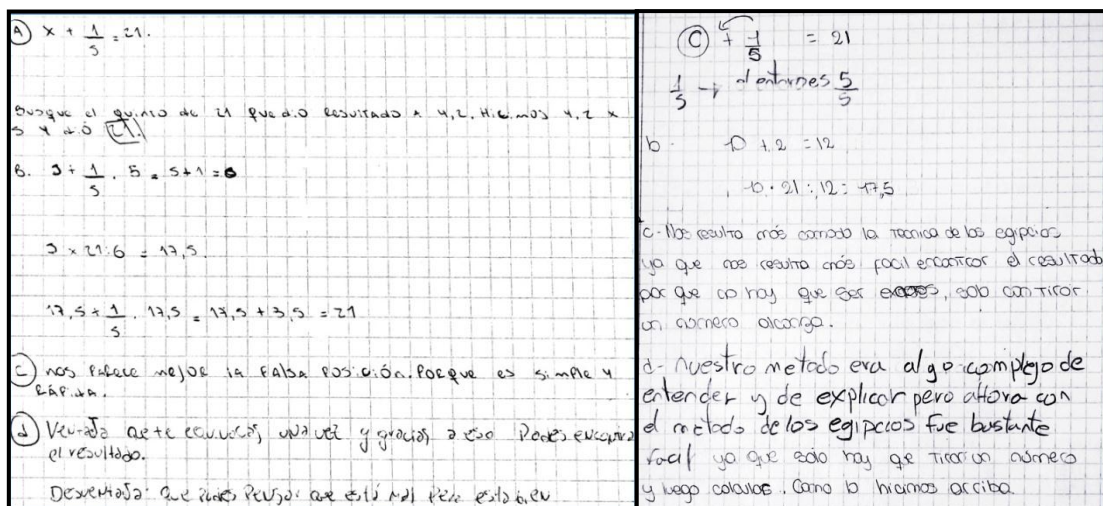 A) x + 1/5 = 21.
Busque el quinto de 21 que dio resultado a 4,2. Hicimos 4,2 x
5 y dió 21.
B. 5 + 1/5 . 5 = 5+1 = 6
5 x 21:6 = 17,5.
17,5 + 1/5 . 17,5 = 17,5 + 3,5 = 21
C) nos parece mejor la falsa posición. Porque es simple y
rápida.
d) Ventaja que te equivocas, una vez y gracias a eso Podes encontra
el resultado.
Desventaja: que Podes Pensar que está mal pero esta bien
C) + 1/5 = 21
1/5 → el entero es 5/5
b. 10 + 2 = 12
10 . 21 : 12 = 17,5
c- Nos resulta más comodo la tecnica de los egipcios
ya que nos resulta más facil encontrar el resultado
por que no hay que ser, solo con tirar
un número alcanza.
d- nuestro metodo era algo complejo de
entender y de explicar pero ahora con
el metodo de los egipcios fue bastante
facil ya que solo hay que tirar un número
y luego. Como lo hicimos arriba.